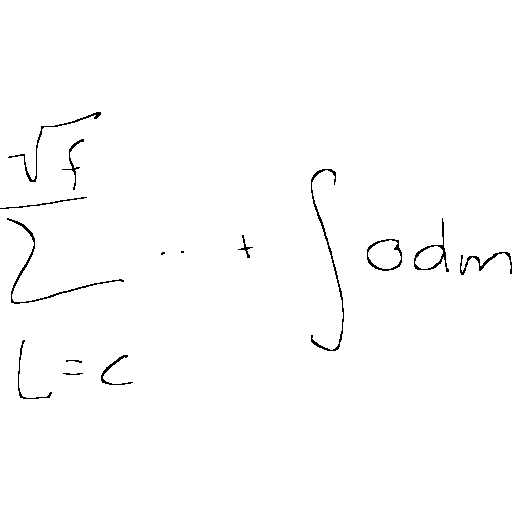 \sum_{L=c}^{\sqrt{f}} .. + \int o dm